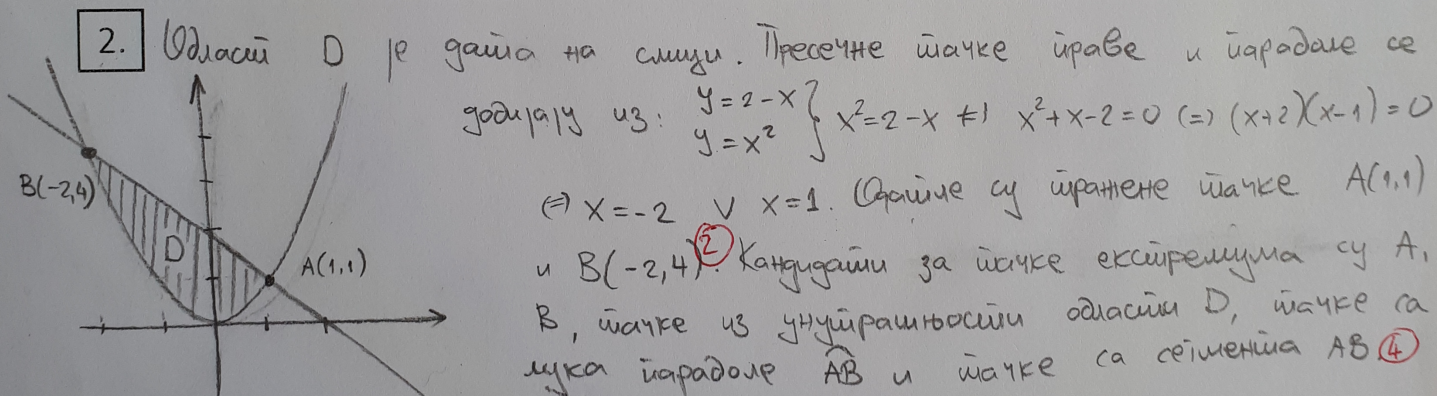 2. Област D је дата на слици. Пресечне тачке праве и параболе се
добијају из: y = 2 - x
y = x² } x² = 2 - x ⇔ x² + x - 2 = 0 ⇔ (x+2)(x-1) = 0
⇔ x = -2 ∨ x = 1. Одатле су тражене тачке A(1,1)
и B(-2,4) ②. Кандидати за тачке екстремума су A,
B, тачке из унутрашњости области D, тачке са
лука параболе A͡B и тачке са сегмента AB ④
B(-2,4)
D
A(1,1)